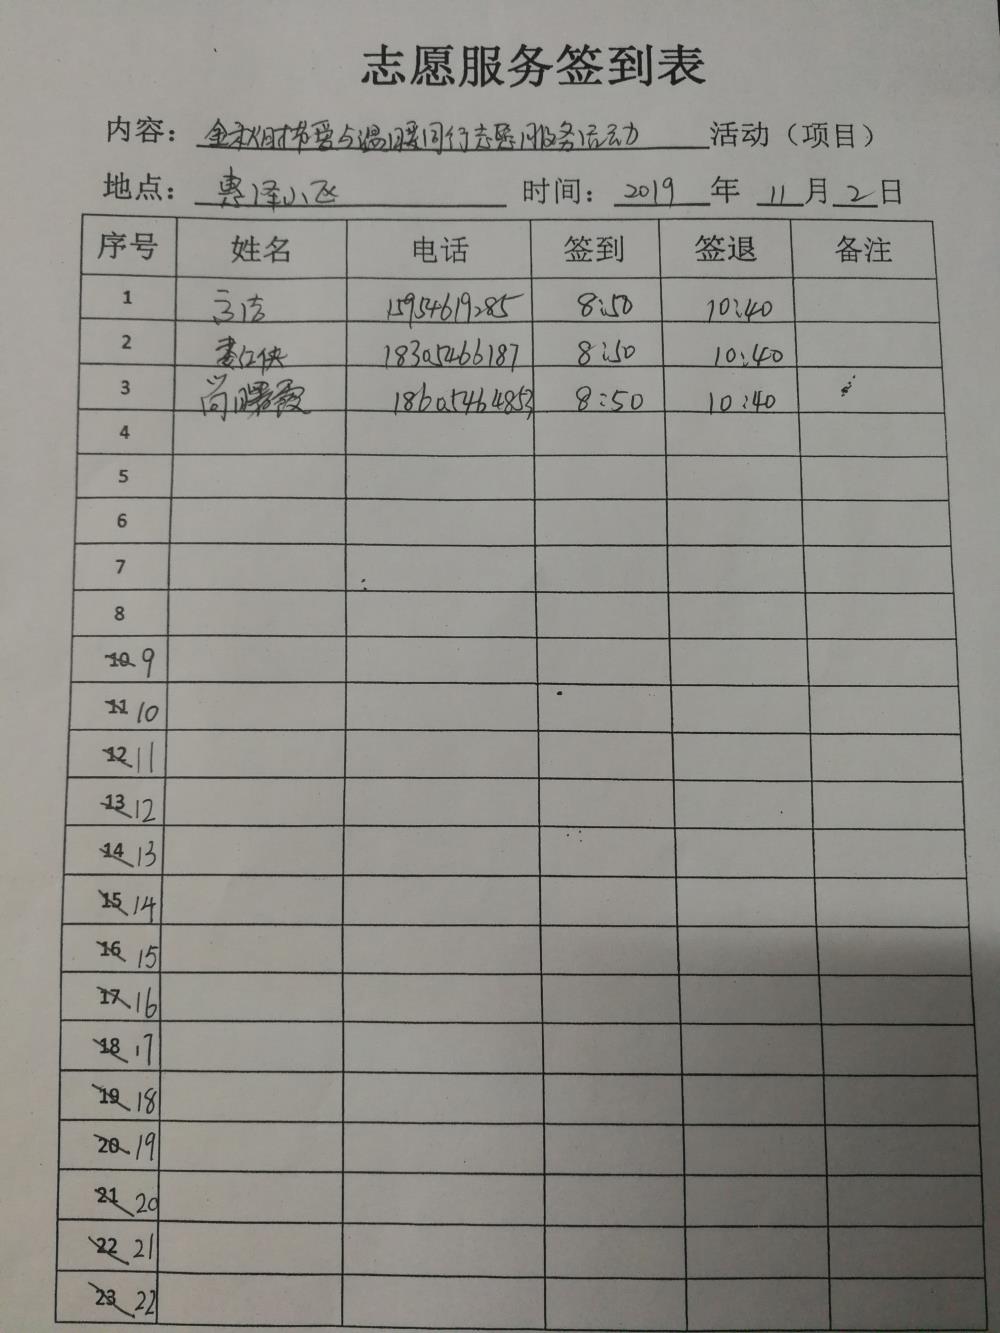 志愿服务签到表
内容：金秋时节爱与温暖同行志愿服务活动活动（项目）
地点：惠泽小区 时间：2019年11月2日
序号 姓名 电话 签到 签退 备注
1 15954619285 8:50 10:40
2 18305466187 8:50 10:40
3 尚曙霞 18605464853 8:50 10:40
4
5
6
7
8
10 9
11 10
12 11
13 12
14 13
15 14
16 15
17 16
18 17
19 18
20 19
21 20
22 21
23 22